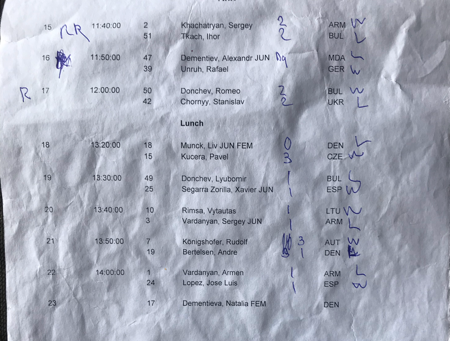 15 RR 11:40:00 2 Khachatryan, Sergey 2 ARM W
51 Tkach, Ihor 2 BUL L
16 11:50:00 47 Dementiev, Alexandr JUN MDA L
39 Unruh, Rafael GER W
R 17 12:00:00 50 Donchev, Romeo 2 BUL W
42 Chornyy, Stanislav 2 UKR L
Lunch
18 13:20:00 18 Munck, Liv JUN FEM 0 DEN L
15 Kucera, Pavel 3 CZE W
19 13:30:00 49 Donchev, Lyubomir 1 BUL L
25 Segarra Zorilla, Xavier JUN 1 ESP W
20 13:40:00 10 Rimsa, Vytautas 1 LTU W
3 Vardanyan, Sergey JUN 1 ARM L
21 13:50:00 7 Königshofer, Rudolf 3 AUT W
19 Bertelsen, Andre 1 DEN
22 14:00:00 1 Vardanyan, Armen 1 ARM L
24 Lopez, Jose Luis 1 ESP W
23 17 Dementieva, Natalia FEM DEN